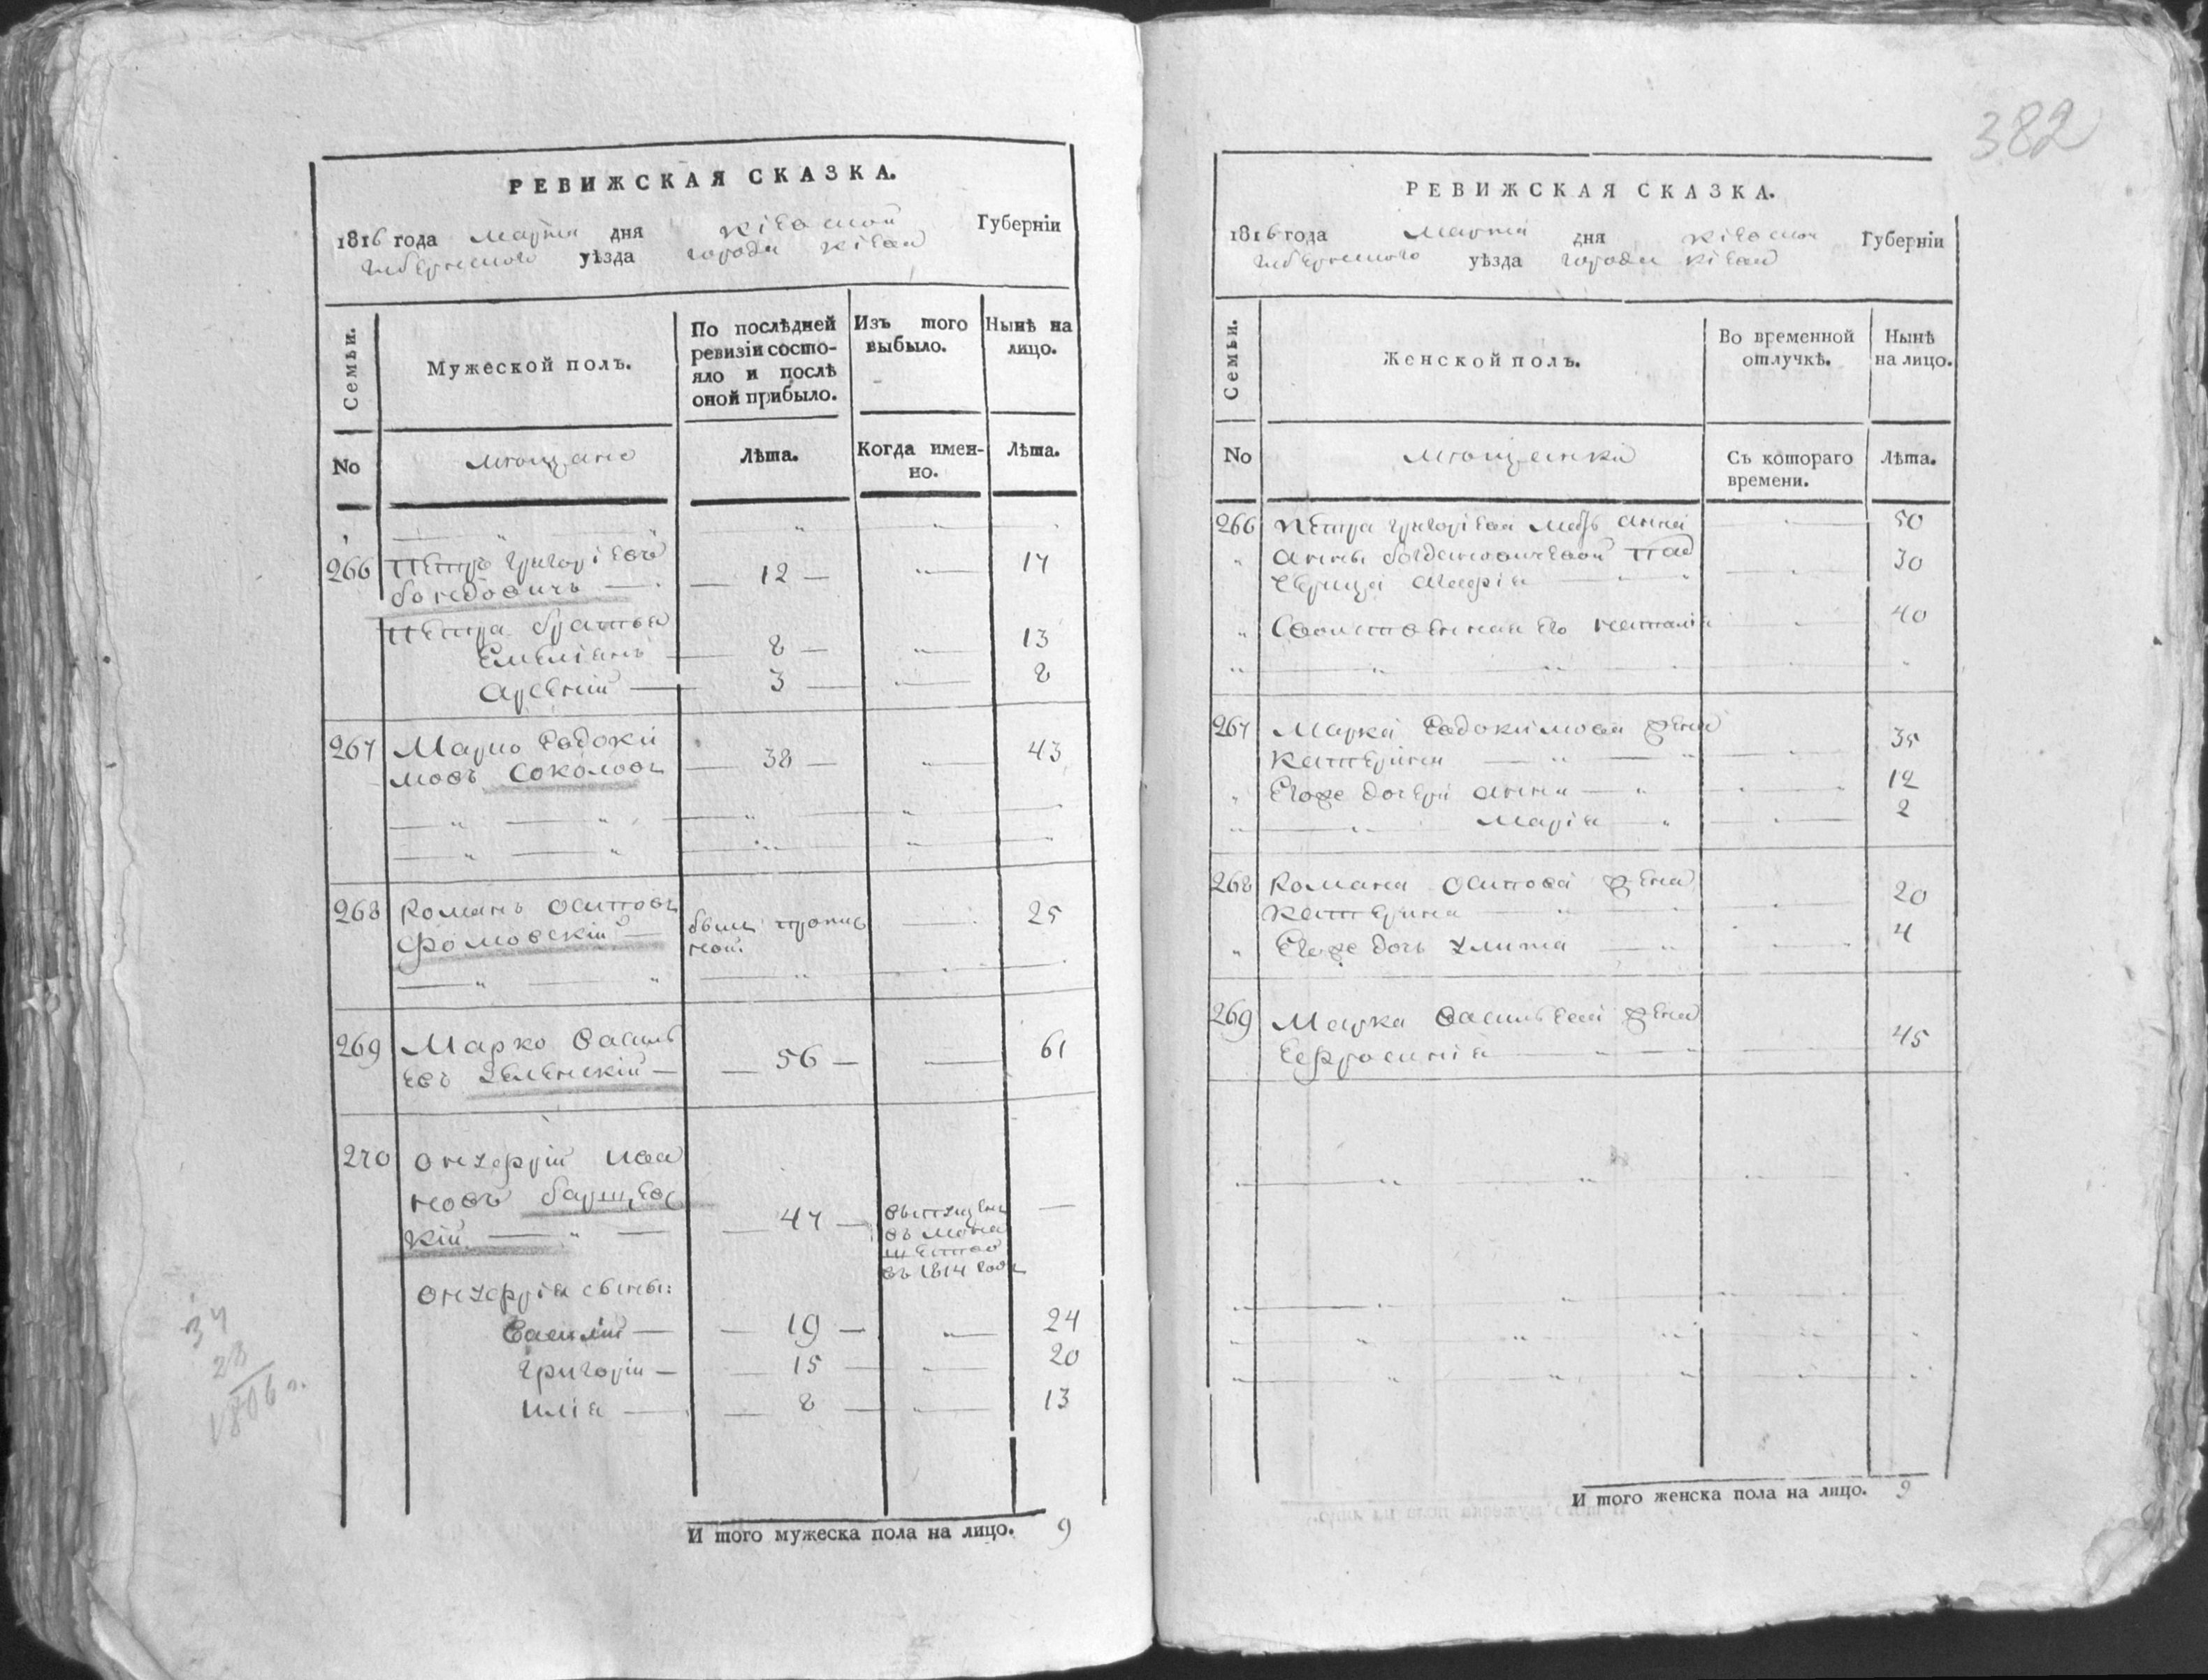 РЕВИЖСКАЯ СКАЗКА.
1816 года марта дня Кіевской Губерніи
Губернского уѣзда города Кіева
Семьи.
Мужеской полъ.
По послѣдней ревизіи состояло и послѣ оной прибыло.
Изъ того выбыло.
Нынѣ на лицо.
No
мѣщане
Лѣта.
Когда именно.
Лѣта.
266 Петръ Григоріевъ
12 17
Петра братья
Емеліанъ 8 13
Арсеній 3 8
267 Марко Евдоки
мовъ Соколовъ 38 43
268 Романъ Осиповъ
Фомовскій
25
269 Марко Василь
евъ Зеленскій 56 61
270 Онуфрій Ива
новъ Барщевс
кій 47
въ мона
шество
въ 1814 годѣ
Онуфрія сыны:
Василій 19 24
Григорій 15 20
Илія 8 13
И того мужеска пола на лицо. 9
34
28
1806 г.
382
РЕВИЖСКАЯ СКАЗКА.
1816 года марта дня Кіевской Губерніи
Губернского уѣзда города Кіева
Семьи.
Женской полъ.
Во временной отлучкѣ.
Нынѣ на лицо.
No
мѣщанки
Съ котораго времени.
Лѣта.
266 Петра Григоріева мать Анна 50
Анны Богдановичевой пад
черица 30
40
267 Марка Евдокимова жена
Катерина 35
Егоже дочери Анна 12
Марія 2
268 Романа Осипова жена
Катерина 20
Егоже дочь Улита 4
269 Марка Васильева жена
Ефросинія 45
И того женска пола на лицо. 9